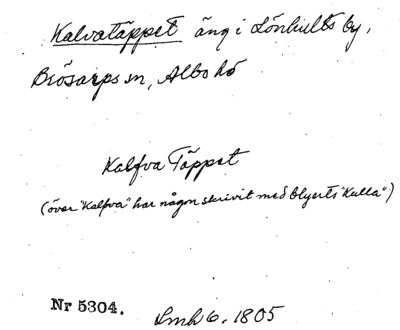 Kalvatäppet äng i Lönhults by,
Brösarps sn, Albo hd
Kalfva Täppet
(över "Kalfva" har någon skrivit med blyerts "Kulla")
Nr 5304. Lmh 6. 1805